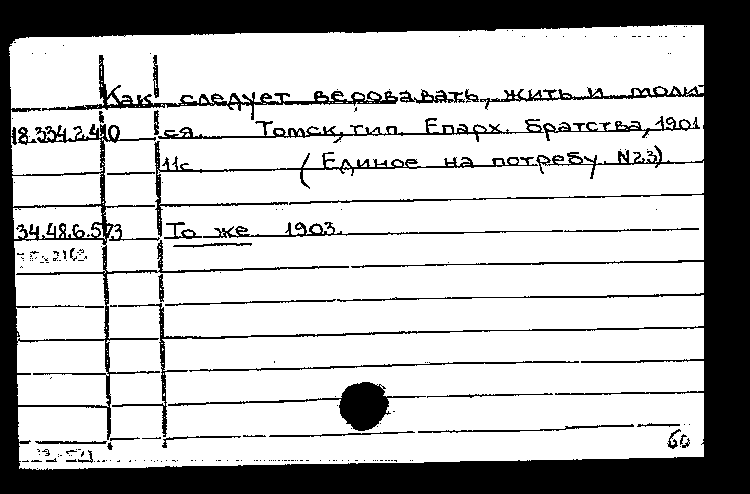 Как следует веровавать, жить и моли
18.334.2.410 ся. Томск, тип. Епарх. братства, 1901.
11с. (Единое на потребу. №23).
34.48.6.573 То же. 1903.
60